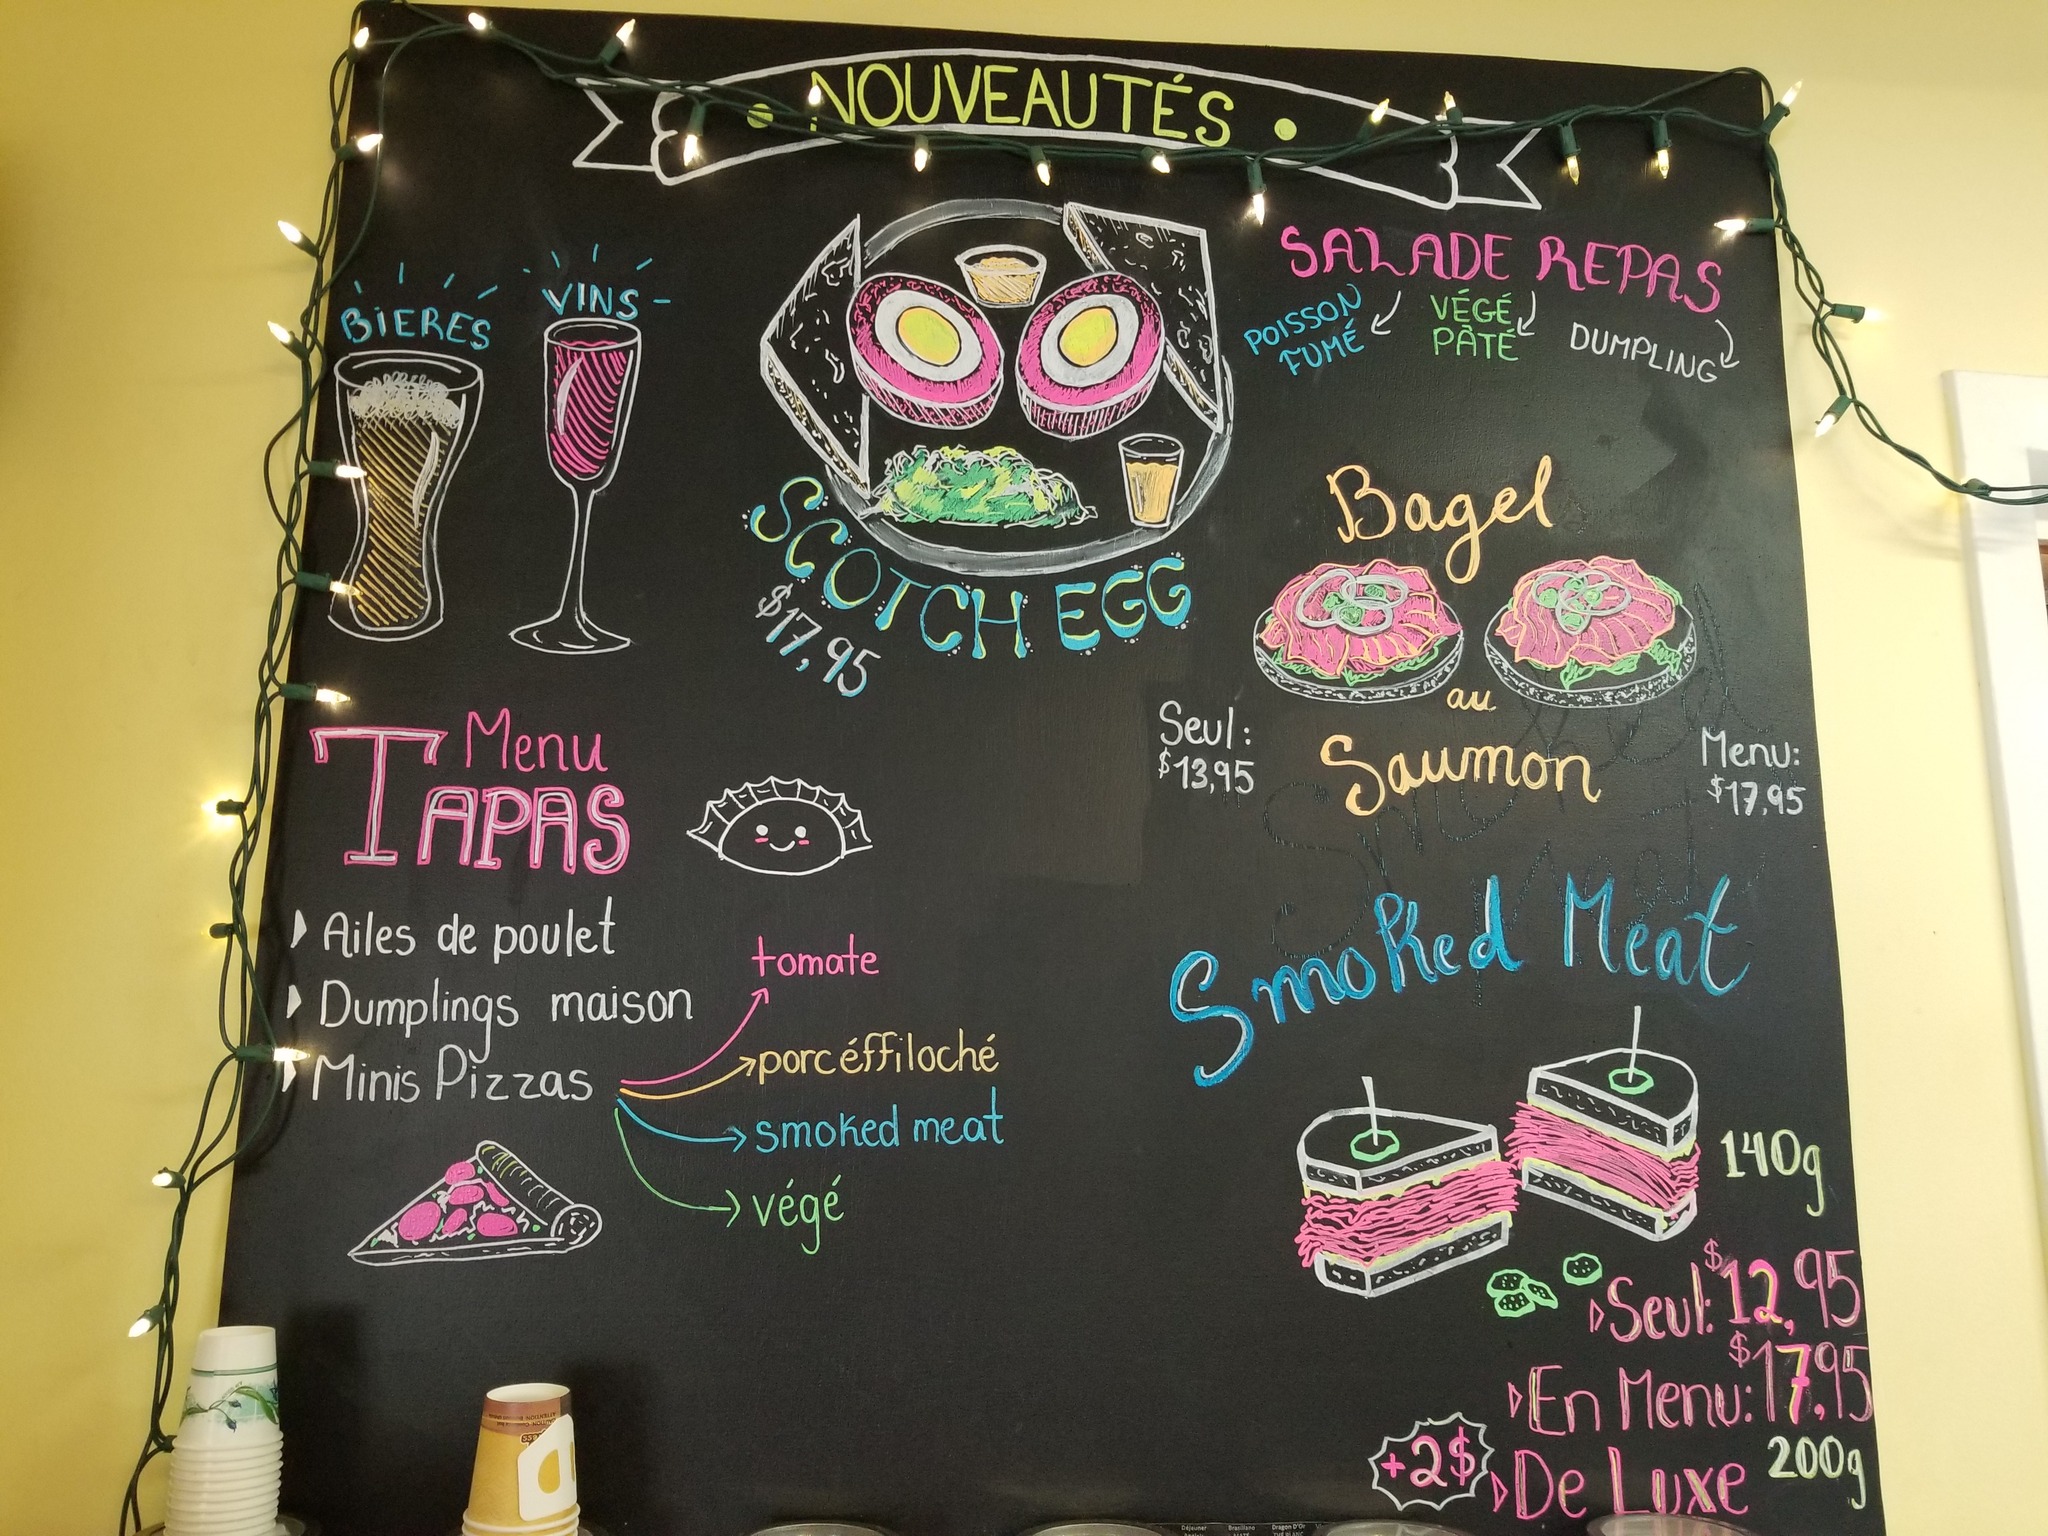 • NOUVEAUTÉS •
BIERES
VINS
SCOTCH EGG
$17,95
SALADE REPAS
POISSON
FUMÉ
VÉGÉ
PÂTÉ
DUMPLING
Bagel
au
Saumon
Seul:
$13,95
Menu:
$17,95
Menu
TAPAS
Ailes de poulet
Dumplings maison
Minis Pizzas
tomate
porc éffiloché
smoked meat
végé
Smoked Meat
140g
Seul: $12,95
En Menu: $17,95
+2$ De Luxe 200g